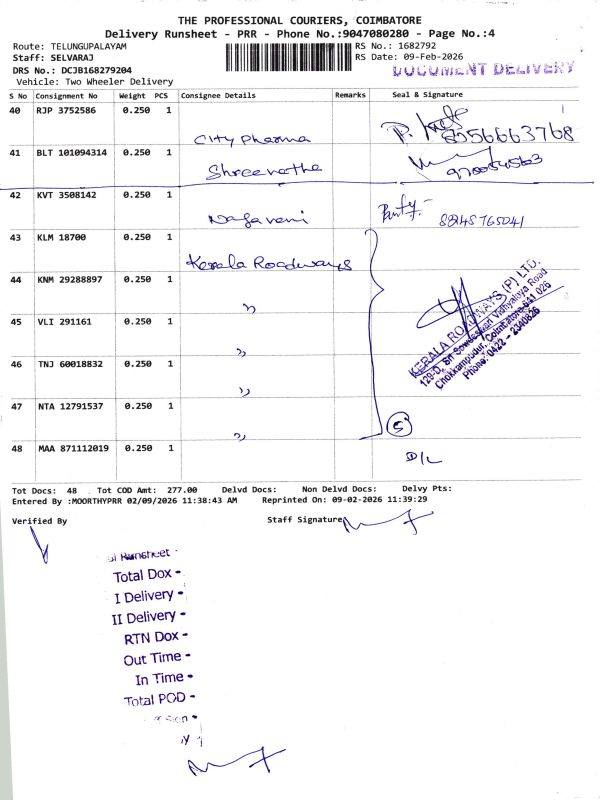 THE PROFESSIONAL COURIERS, COIMBATORE
Delivery Runsheet - PRR - Phone No.:9047080280 - Page No.:4
Route: TELUNGUPALAYAM
Staff: SELVARAJ
DRS No.: DCJB168279204
Vehicle: Two Wheeler Delivery
RS No.: 1682792
RS Date: 09-Feb-2026
DOCUMENT DELIVERY
S No Consignment No Weight PCS Consignee Details Remarks Seal & Signature
40 RJP 3752586 0.250 1 City Pharma 9556663768
41 BLT 101094314 0.250 1 Shreenatha
42 KVT 3508142 0.250 1 Nagaveni
43 KLM 18700 0.250 1 Kerala Roadways
44 KNM 29288897 0.250 1 "
45 VLI 291161 0.250 1 "
46 TNJ 60018832 0.250 1 "
47 NTA 12791537 0.250 1 "
KERALA ROADWAYS (P) LTD.
129-D, Sri Sowdeswari Vidhyalaya Road
Chokkampudur, Coimbatore-641 026
Phone: 0422 - 2340826
5
48 MAA 871112019 0.250 1 D/L
Tot Docs: 48 Tot COD Amt: 277.00 Delvd Docs: Non Delvd Docs: Delvy Pts:
Entered By :MOORTHYPRR 02/09/2026 11:38:43 AM Reprinted On: 09-02-2026 11:39:29
Verified By Staff Signature
Runsheet -
Total Dox -
I Delivery -
II Delivery -
RTN Dox -
Out Time -
In Time -
Total POD -